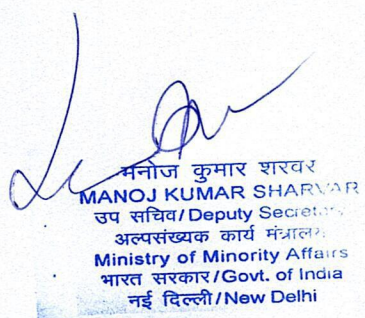 मनोज कुमार शरवर
MANOJ KUMAR SHARVAR
उप सचिव/Deputy Secretary
अल्पसंख्यक कार्य मंत्रालय
Ministry of Minority Affairs
भारत सरकार/Govt. of India
नई दिल्ली/New Delhi